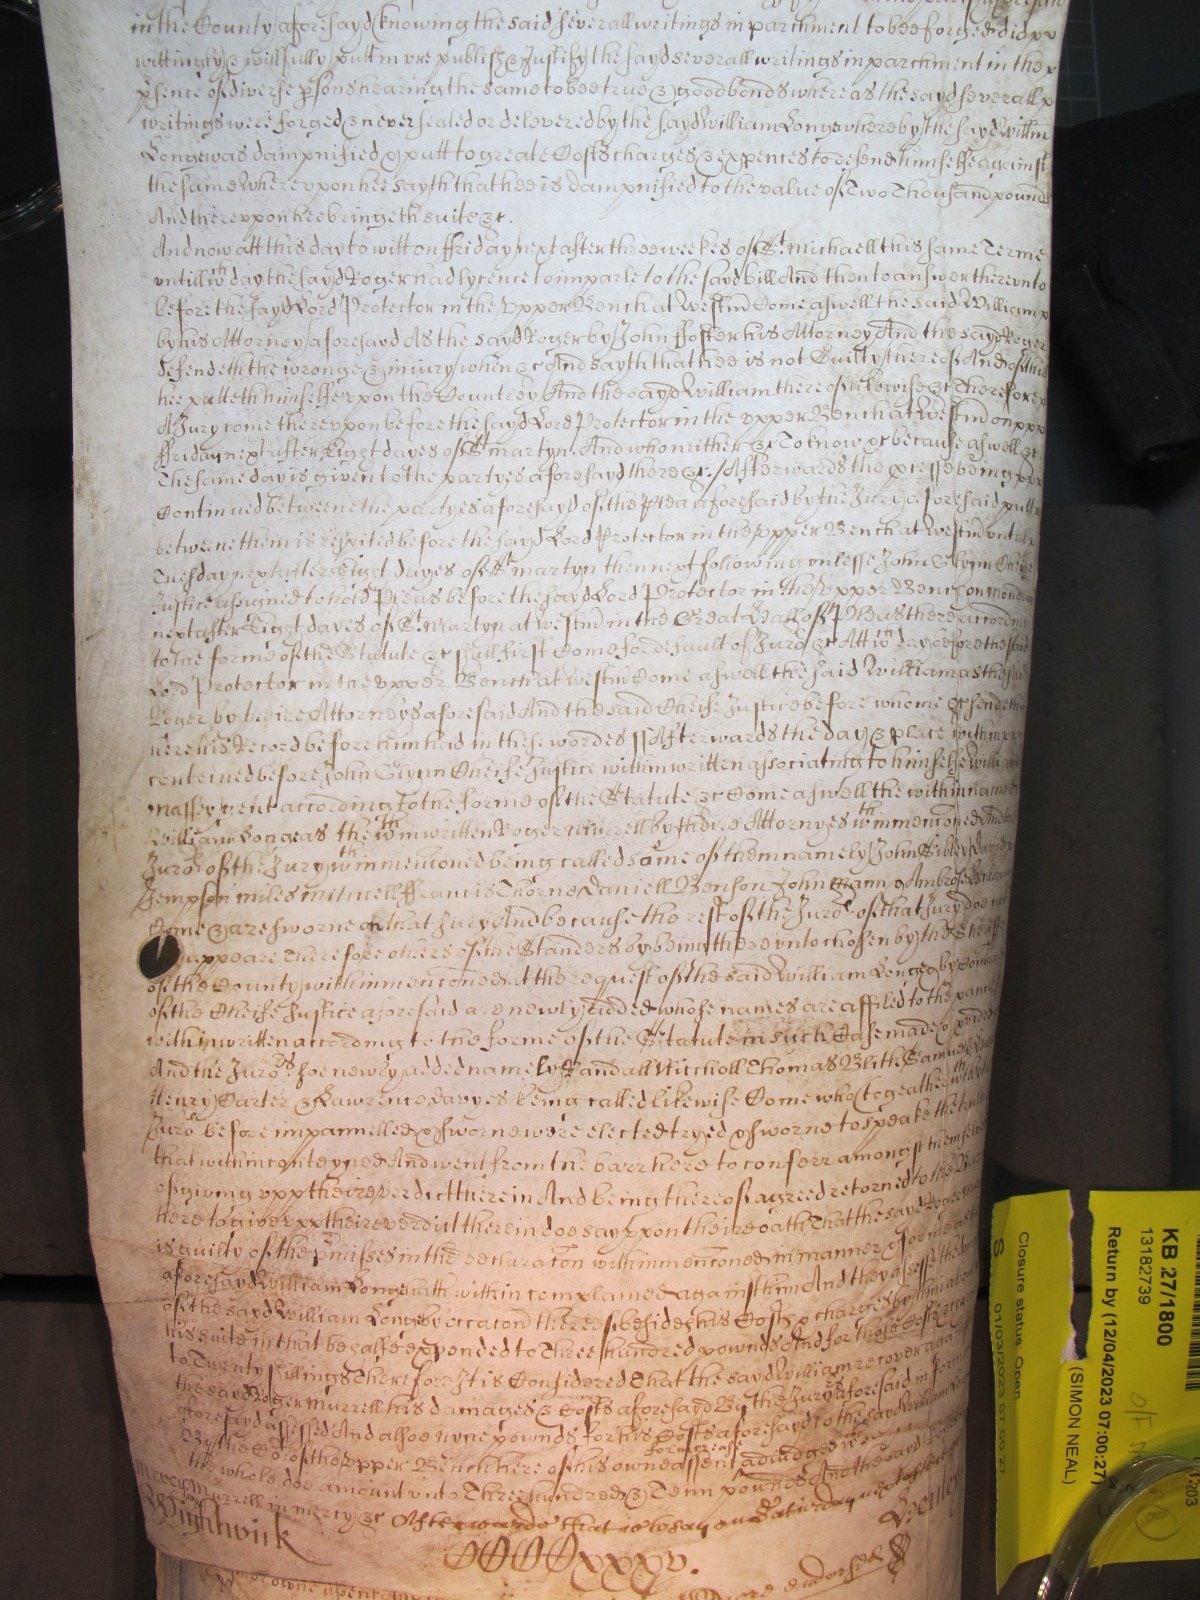 in the County aforesayd knowing the said severall writings in parchment to bee forged did
wittingly & willfully putt in vre publish & Justify the sayd severall writings in parchment in the
psence of diverse psons hearing the same to bee true & good bonds whereas the sayd severall
writings were forged & never sealed or delevered by the sayd William Longe whereby the sayd Willm
Longe was dampnified & putt to greate Costs charges & expences to defend himselfe against
the same Wherevpon hee sayth that hee is dampnified to the value of Two Thousand pounds
And therevppon hee bringeth suite &c.
And now att this day to witt on ffriday next after three weekes of St. Michaell this same Terme
vntill wch day the sayd Roger had lycence to imparle to the sayd bill And then to answer therevnto
before the sayd Lord Protector in the Vpper Bench at Westm Come aswell the said William
by his Attorney aforesayd As the sayd Roger by John ffoster his Attorney And the sayd Roger
defendeth the wronge & iniury when &c And sayth that hee is not Guilty thereof And of this
hee putteth himselfe vpon the Countrey And the sayd William thereof likewise &c Therefore
A Jury come therevpon before the sayd Lord Protector in the vpper Bench at Westm on
ffriday next after Eight dayes of St. Martyn. And who neither &c To know &c because aswell &c
The same day is given to the partyes aforesayd there &c / Afterwards the pcesse being
Continued betweene the partyes aforesayd of the Plea aforesaid by the Jury aforesaid putt
betweene them is respited before the sayd Lord Protector in the vpper Bench at Westm vntill
Tuesday next after Eight dayes of St. Martyn then next following vnlesse John Glynn Cheife
Justice assigned to hold Pleas before the sayd Lord Protector in the Vpper Bench on monday
next after Eight dayes of St. Martyn at Westm in the Great Hall of Pleas there according
to the forme of the Statute &c shall first Come for default of Juro &c Att wch day before the said
Lord Protector in the vpper Bench at Westm Come aswell the said William as the said
Roger by theire Attorneys aforesaid And the said Cheife Justice before whome &c sendeth
here his Record before him had in these wordes ss Afterwards the day & place within
conteined before John Glynn Cheife Justice within written associating to himselfe William
according to the forme of the Statute &c Come aswell the within named
William Longe as the within written Roger Murrell by theire Attornyes within mentioned And the
Juro of the Jury within mentioned being called some of them namely John Sibley David
Jempson Miles Mitchell ffrancis Thorne Daniell Benson John Mann & Ambrose
Come & are sworne on that Jury And because the rest of the Juro of that Jury doe not
appeare Therefore others of the Standers by being therevnto chosen by the Sheriffe
of the County within mencioned at the request of the said William Longe & by Comand
of the Cheife Justice aforesaid are newly added whose names are affiled to the pannell
within written according to the forme of the Statute in such Case made & pvided
And the Juro soe newly added namely Randall Witcholl Thomas Blith Samuell
Henry Carter & Lawrence Davyes being called likewise Come who togeather with the
Juro before impannelled & sworne were elected tryed & sworne to speake the truth
that within conteyned And went from the barr here to conferr amongst themselves
of giving vpp theire verdict therein And being thereof agreed returned to the Barr
here to give vpp theire verdict therein doe say vpon theire oath That the sayd Roger
is guilty of the pmisses in the declaracon within mencioned in manner & forme as the
aforesayd William Longe hath within complained against him And they assesse the
of the sayd William Longe by occacon thereof besides his Costs & charges by him about
his suite in that behalfe expended to Three hundred pownds And for those Costs & charges
to Twenty shillings Therefore It is Considered That the sayd William recover against
the sayd Roger Murrell his damages & Costs aforesaid By the Jury aforesaid in forme
aforesayd assessed And alsoe nyne pounds for his Costs aforesayd to the sayd William
By the Court of the vpper Bench here of his owne assent adiudged
for increase
the whole doe amount vnto Three hundred & Tenn pownds And the sayd Roger
Murrell in mercy &c Afterwards that is to say on Saturday next after
mercy
Wightwick
KB 27/1800
13182739
Return by (12/04/2023 07:00:27)
(SIMON NEAL)
Closure status: Open
01/03/2023 07:00:27